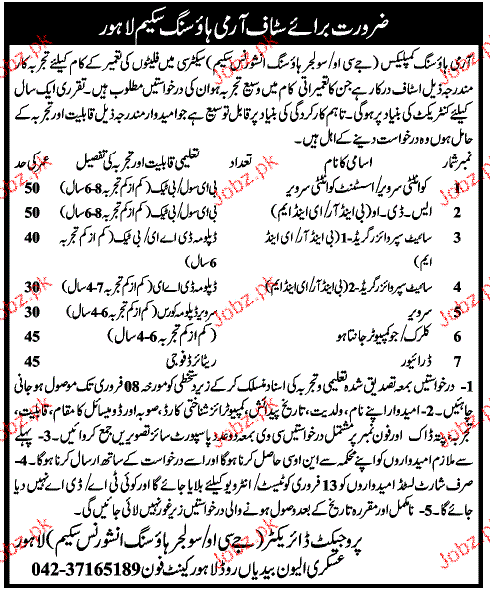 ضرورت برائے سٹاف آرمی ہاؤسنگ سکیم لاہور
آرمی ہاؤسنگ کمپلیکس (جے سی او/سولجر ہاؤسنگ انشورنس سکیم) سیکٹر سی میں فلیٹوں کی تعمیر کے کام کیلئے تجربہ کار
مندرجہ ذیل اسٹاف درکار ہے جن کا تعمیراتی کام میں وسیع تجربہ ہو ان کی درخواستیں مطلوب ہیں۔ تقرری ایک سال
کیلئے کنٹریکٹ کی بنیاد پر ہوگی۔ تاہم کارکردگی کی بنیاد پر قابل توسیع ہے جو امیدوار مندرجہ ذیل قابلیت اور تجربہ کے
حامل ہوں وہ درخواست دینے کے اہل ہیں۔
نمبر شمار اسامی کا نام تعداد تعلیمی قابلیت اور تجربہ کی تفصیل عمر کی حد
1 کوانٹٹی سرویر/اسسٹنٹ کوانٹٹی سرویر بی ای سول/بی ٹیک (کم از کم تجربہ 8-6 سال) 50
2 ایس۔ڈی۔او (بی اینڈ آر/ای اینڈ ایم) بی ای سول/بی ٹیک (کم از کم تجربہ 8-6 سال) 50
3 سائیٹ سپروائزر گریڈ-1 (بی اینڈ آر/ای اینڈ ڈپلومہ ڈی اے ای/بی ٹیک (کم از کم تجربہ 40
ایم) 6 سال)
4 سائیٹ سپروائزر گریڈ-2 (بی اینڈ آر/ای اینڈ ایم) ڈپلومہ ڈی اے ای (کم از کم تجربہ 7-4 سال) 30
5 سرویر سرویر ڈپلومہ کورس (کم از کم تجربہ 6-4 سال) 30
6 کلرک/جو کمپیوٹر جانتا ہو (کم از کم تجربہ 6-4 سال) 45
7 ڈرائیور ریٹائرڈ فوجی 45
1- درخواستیں بمعہ تصدیق شدہ تعلیمی و تجربہ کی اسناد منسلک کر کے زیر دستخطی کو مورخہ 08 فروری تک موصول ہو جانی
چاہئیں۔ 2- امیدوار اپنے نام، ولدیت، تاریخ پیدائش، کمپیوٹرائز شناختی کارڈ، صوبہ اور ڈومیسائل کا مقام، قابلیت،
تجربہ، پتہ ڈاک اور فون نمبر پر مشتمل درخواستیں سی وی بمعہ دو عدد پاسپورٹ سائز تصویریں جمع کروائیں۔ 3- پہلے
سے ملازم امیدواروں کو اپنے محکمہ سے این او سی حاصل کرنا ہوگا اور اسے درخواست کے ساتھ ارسال کرنا ہوگا۔ 4-
صرف شارٹ لسٹڈ امیدواروں کو 13 فروری کو ٹیسٹ/انٹرویو کیلئے بلایا جائے گا اور کوئی ٹی اے/ڈی اے نہیں دیا
جائے گا۔ 5- نامکمل اور مقررہ تاریخ کے بعد وصول ہونے والی درخواستیں زیر غور نہیں لائی جائیں گی۔
پروجیکٹ ڈائریکٹر (جے سی او/سولجر ہاؤسنگ انشورنس سکیم) لاہور
عسکری الیون بیدیاں روڈ لاہور کینٹ فون 042-37165189
Jobz.pk